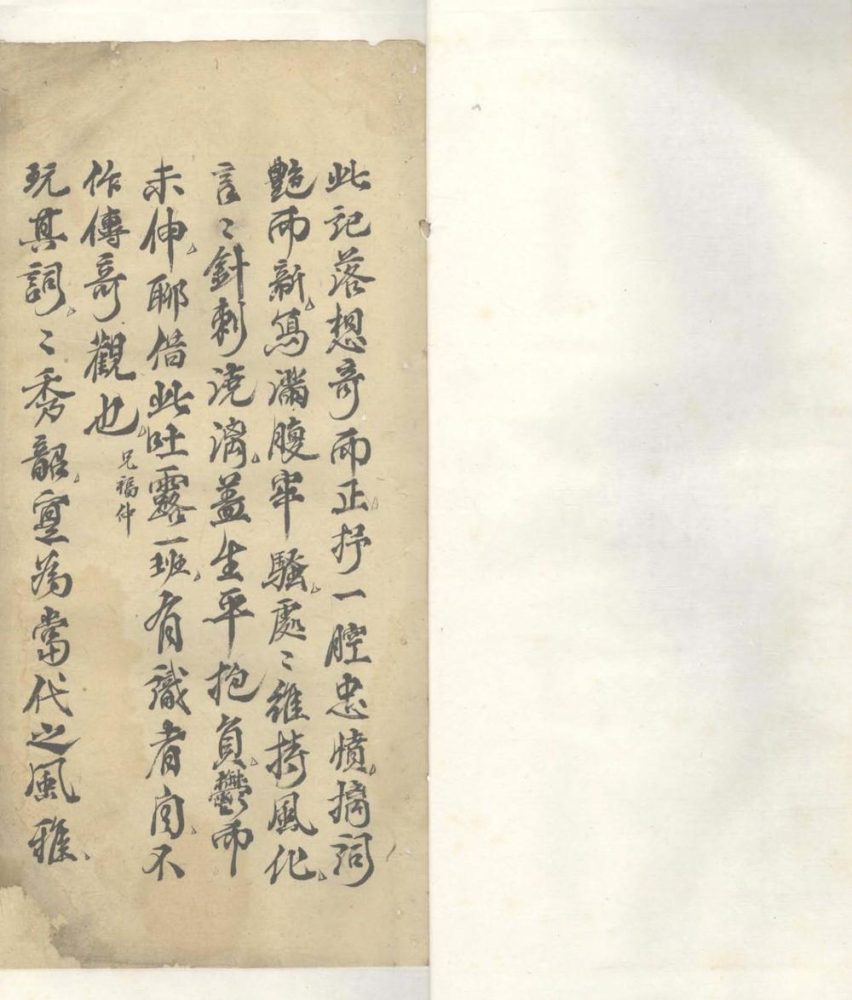 此記落想奇而正抒一腔忠憤摛詞
艷而新寫滿腹牢騷處〻維持風化
言〻針刺澆漓蓋生平抱負鬱而
未伸聊借此吐露一班有識者自不
作傳奇觀也 兄福仲
玩其詞〻秀韶寔為當代之風雅